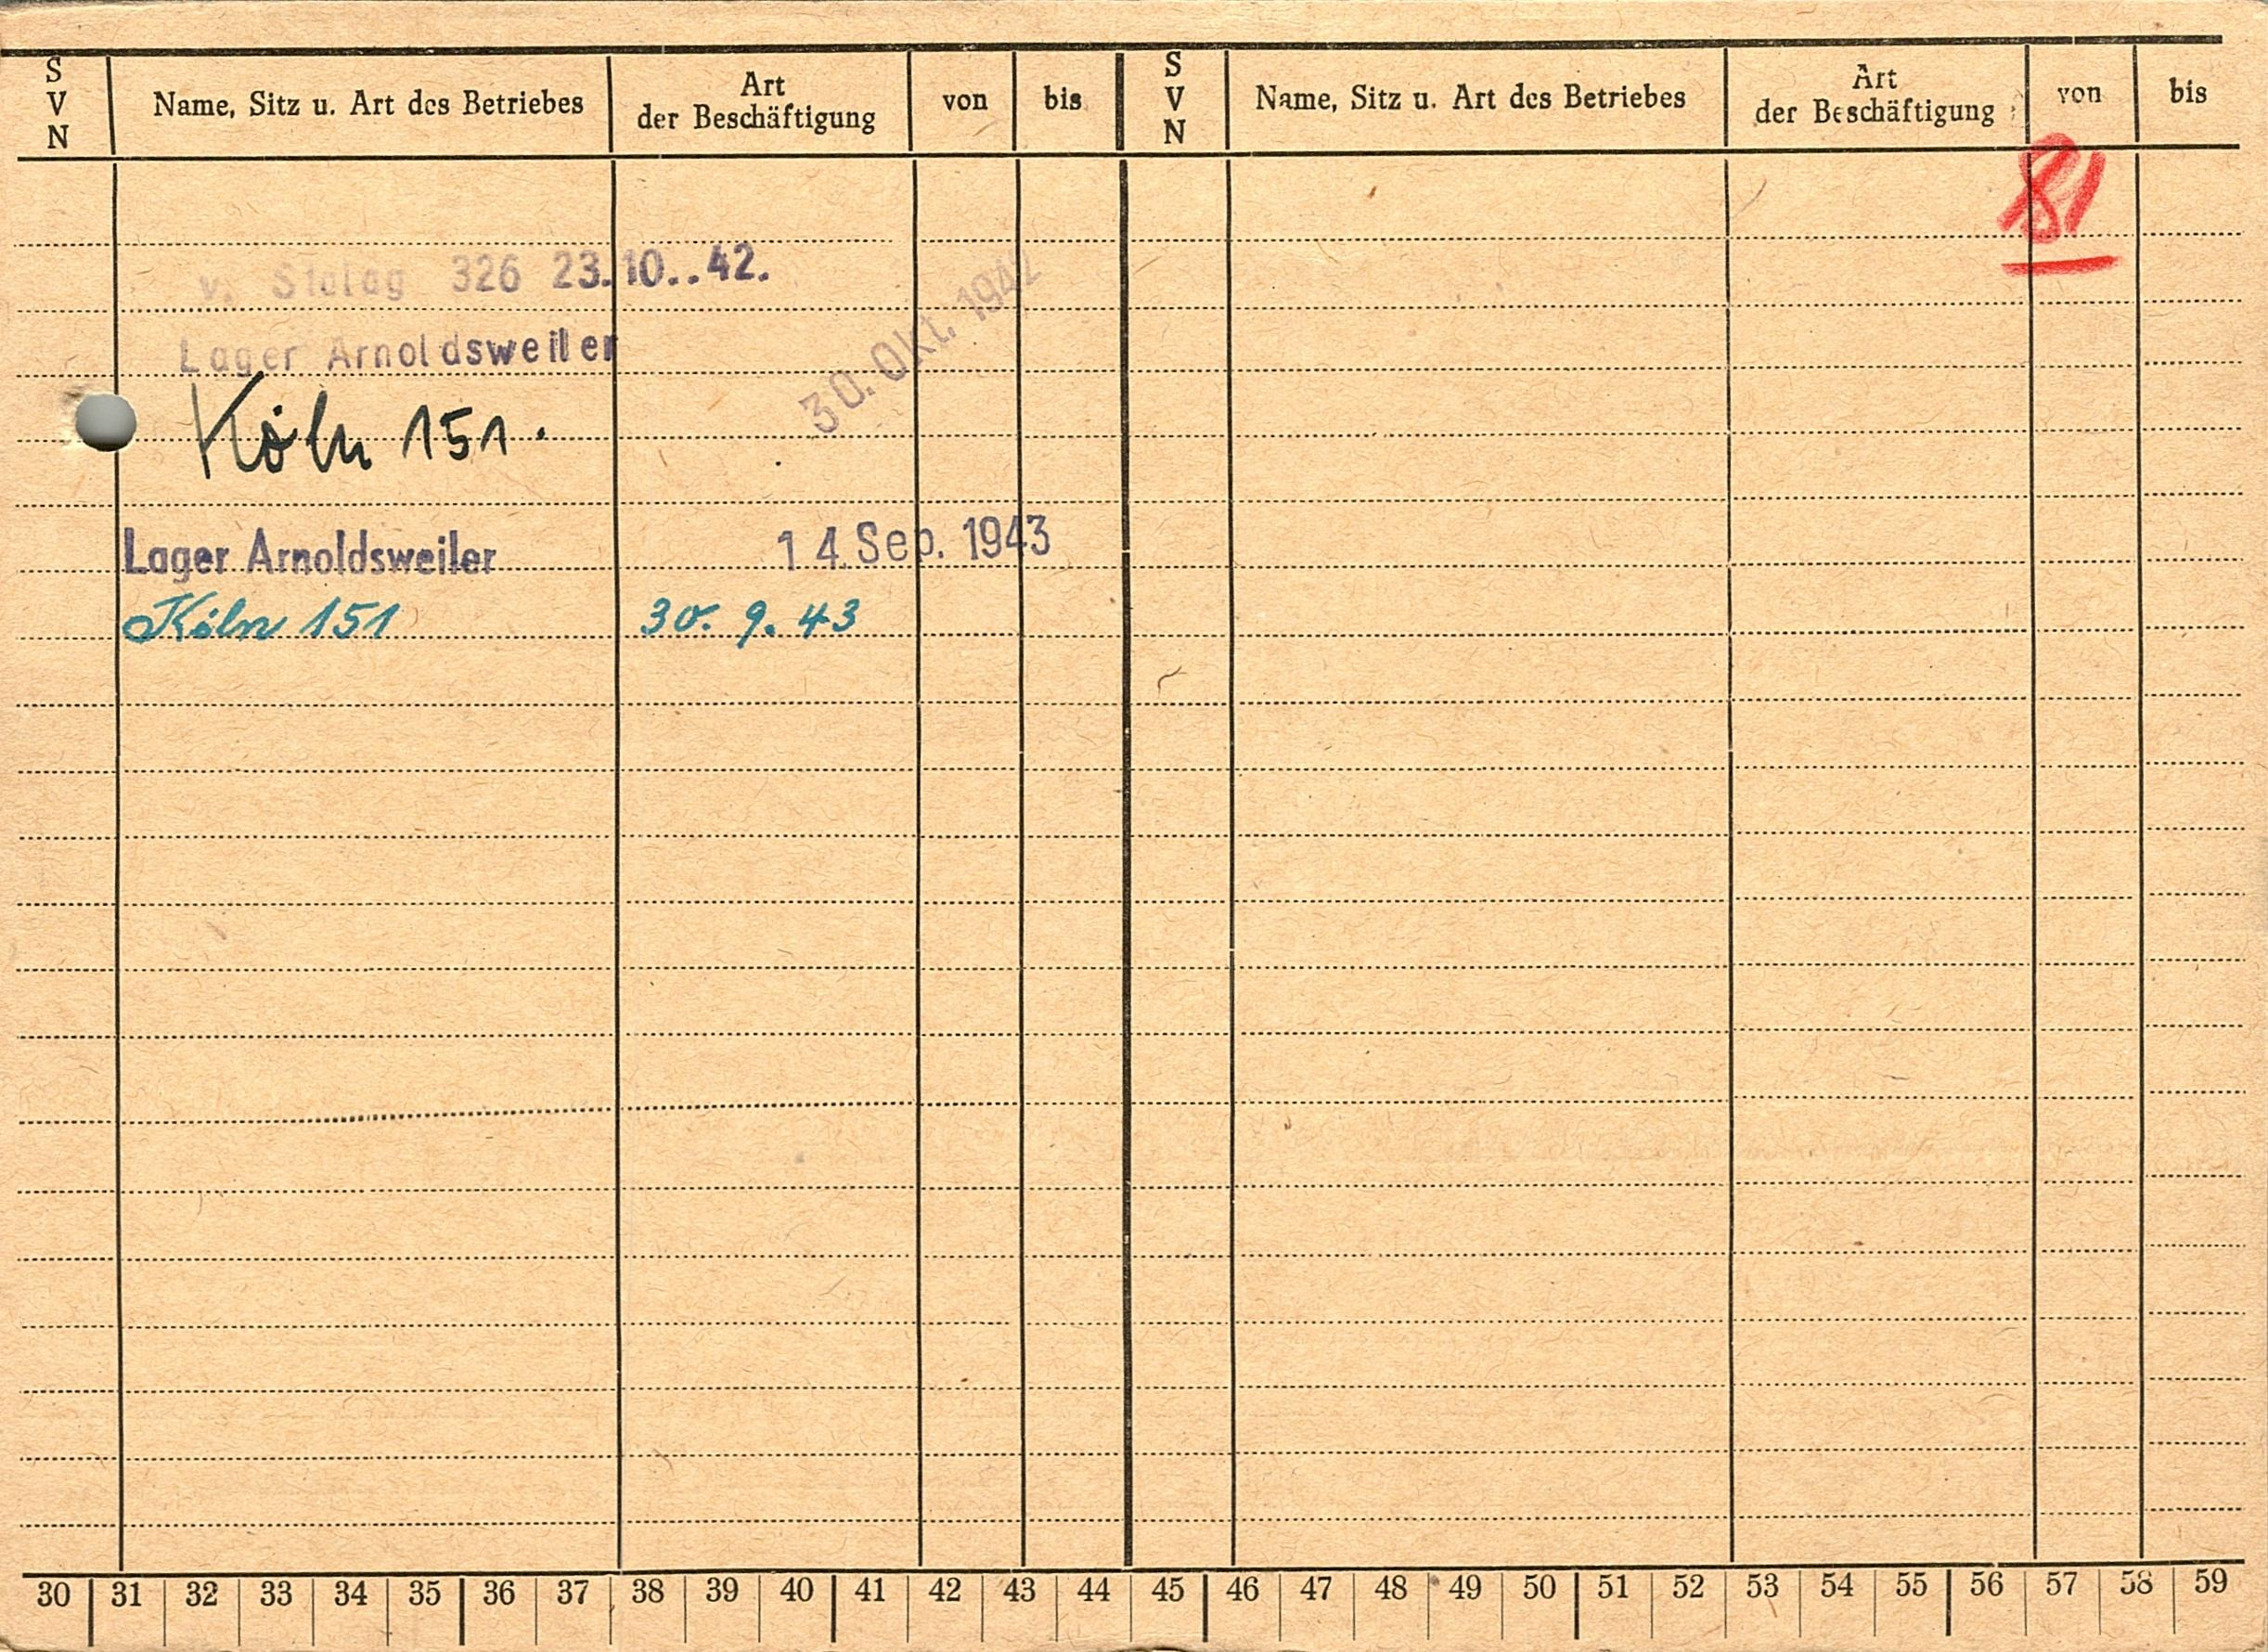 S V N Name, Sitz u. Art des Betriebes Art der Beschäftigung von bis S V N Name, Sitz u. Art des Betriebes Art der Beschäftigung von bis
81
v. Stalag 326 23.10..42.
Lager Arnoldsweiler
30. Okt. 1942
Köln 151.
Lager Arnoldsweiler 14. Sep. 1943
Köln 151 30. 9. 43
30 31 32 33 34 35 36 37 38 39 40 41 42 43 44 45 46 47 48 49 50 51 52 53 54 55 56 57 58 59